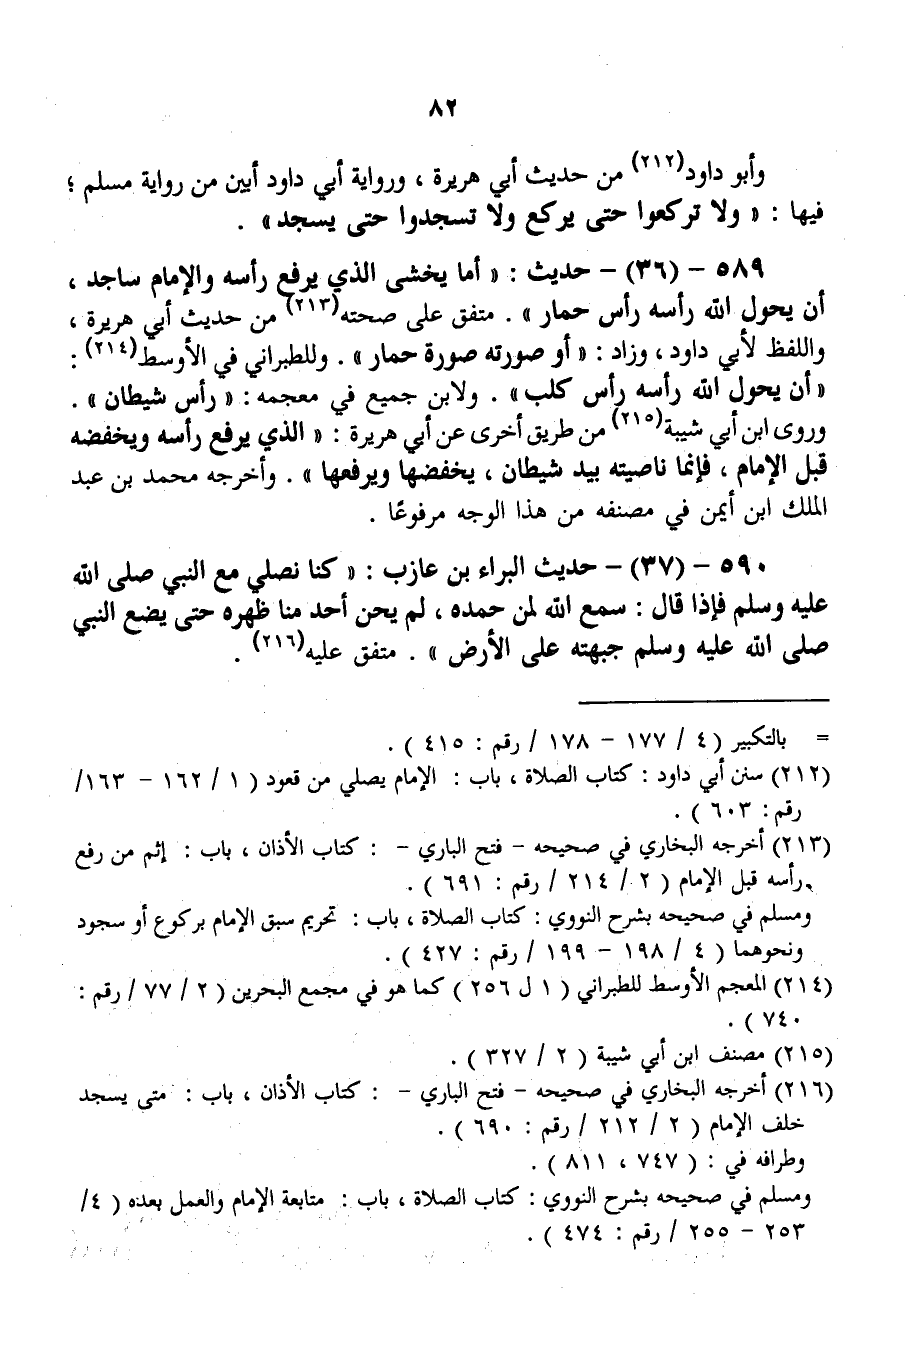 ٨٢
وأبو داود(٢١٢) من حديث أبي هريرة ، ورواية أبي داود أبين من رواية مسلم ؛
فيها : « ولا تركعوا حتى يركع ولا تسجدوا حتى يسجد » .
٥٨٩ – (٣٦) – حديث : « أما يخشى الذي يرفع رأسه والإمام ساجد ،
أن يحول الله رأسه رأس حمار » . متفق على صحته(٢١٣) من حديث أبي هريرة ،
واللفظ لأبي داود ، وزاد : « أو صورته صورة حمار » . وللطبراني في الأوسط(٢١٤) :
« أن يحول الله رأسه رأس كلب » . ولابن جميع في معجمه : « رأس شيطان » .
وروى ابن أبي شيبة(٢١٥) من طريق أخرى عن أبي هريرة : « الذي يرفع رأسه ويخفضه
قبل الإمام ، فإنما ناصيته بيد شيطان ، يخفضها ويرفعها » . وأخرجه محمد بن عبد
الملك ابن أيمن في مصنفه من هذا الوجه مرفوعًا .
٥٩٠ – (٣٧) – حديث البراء بن عازب : « كنا نصلي مع النبي صلى الله
عليه وسلم فإذا قال : سمع الله لمن حمده ، لم يحن أحد منا ظهره حتى يضع النبي
صلى الله عليه وسلم جبهته على الأرض » . متفق عليه(٢١٦) .
= بالتكبير ( ٤ / ١٧٧ – ١٧٨ / رقم : ٤١٥ ) .
(٢١٢) سنن أبي داود : كتاب الصلاة ، باب : الإمام يصلي من قعود ( ١ / ١٦٢ – ١٦٣/
رقم : ٦٠٣ ) .
(٢١٣) أخرجه البخاري في صحيحه – فتح الباري – : كتاب الأذان ، باب : إثم من رفع
رأسه قبل الإمام ( ٢ / ٢١٤ / رقم : ٦٩١ ) .
ومسلم في صحيحه بشرح النووي : كتاب الصلاة ، باب : تحريم سبق الإمام بركوع أو سجود
ونحوهما ( ٤ / ١٩٨ – ١٩٩ / رقم : ٤٢٧ ) .
(٢١٤) المعجم الأوسط للطبراني ( ١ ل ٢٥٦ ) كما هو في مجمع البحرين ( ٢ / ٧٧ / رقم :
٧٤٠ ) .
(٢١٥) مصنف ابن أبي شيبة ( ٢ / ٣٢٧ ) .
(٢١٦) أخرجه البخاري في صحيحه – فتح الباري – : كتاب الأذان ، باب : متى يسجد
خلف الإمام ( ٢ / ٢١٢ / رقم : ٦٩٠ ) .
وطرافه في : ( ٧٤٧ ، ٨١١ ) .
ومسلم في صحيحه بشرح النووي : كتاب الصلاة ، باب : متابعة الإمام والعمل بعده ( ٤/
٢٥٣ – ٢٥٥ / رقم : ٤٧٤ ) .